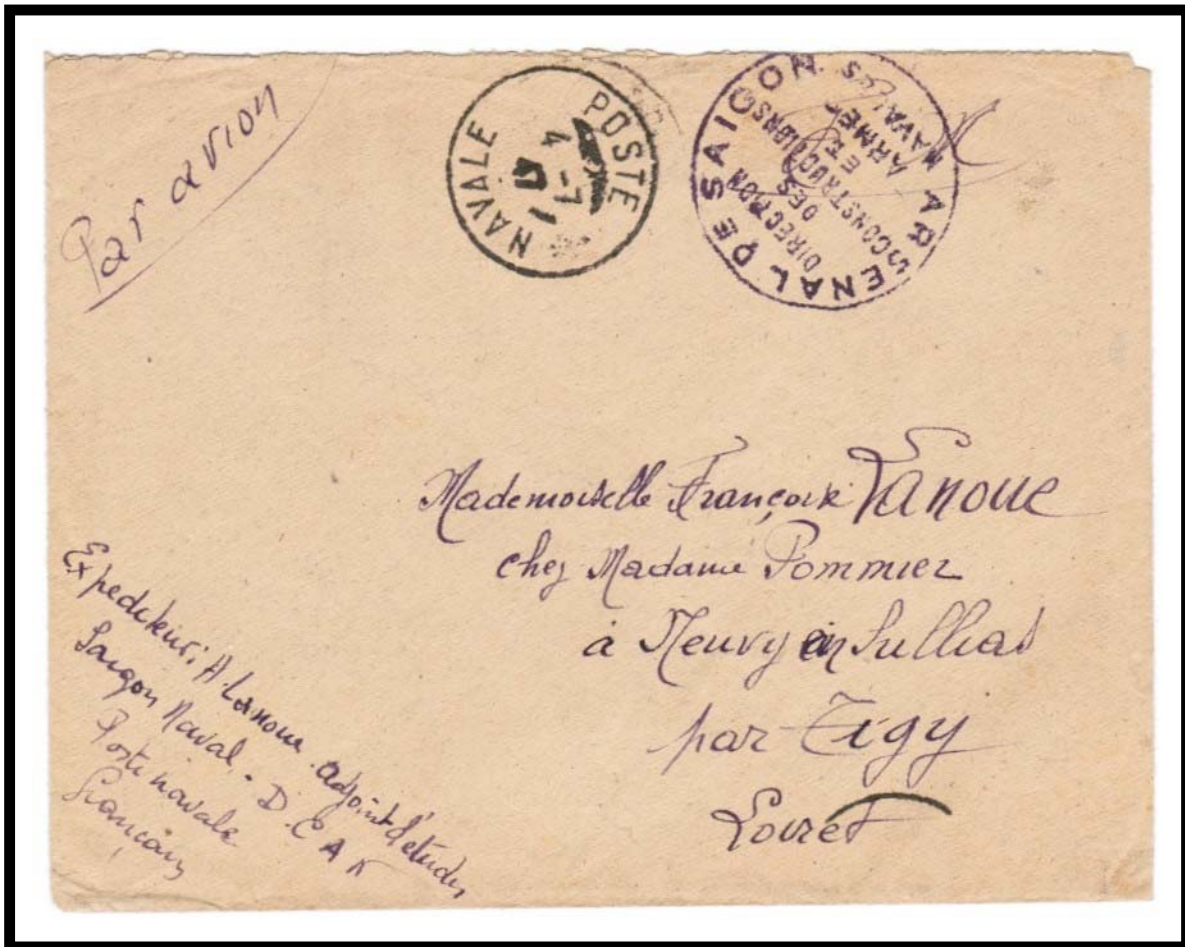 Par avion
POSTE NAVALE
4 -7
ARSENAL DE SAIGON
DIRECTION
DES
CONSTRUCTIONS
ET
ARMES
NAVALES
Mademoiselle Françoise Lanoue
chez Madame Pommier
à Neuvy en Sullias
par Tigy
Loiret
Expediteur: A. Lanoue adjoint d'etudes
Saigon Naval - D.C.A.N
Poste navale
Français